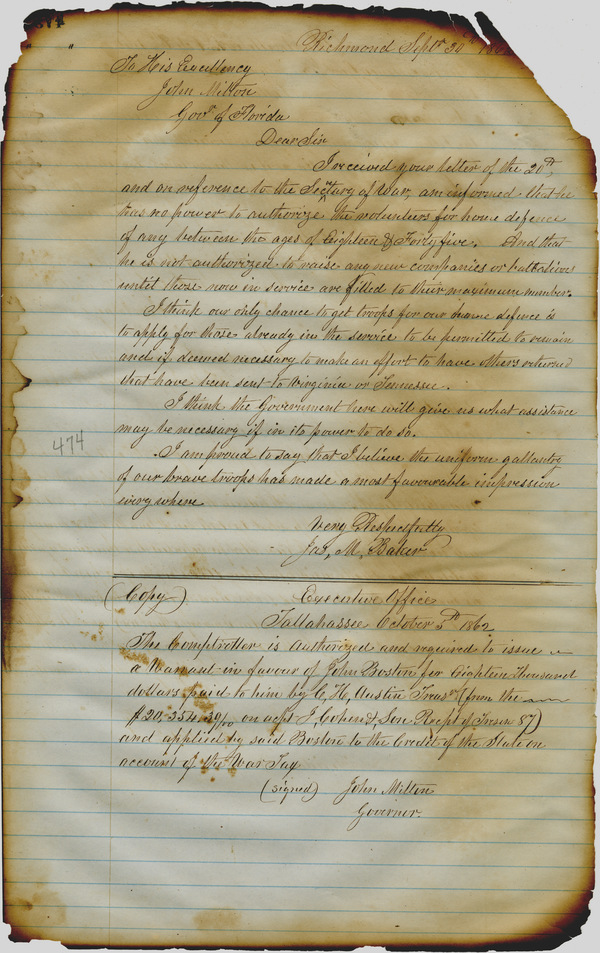 474
Richmond Septr 30th 1862
To His Excellency
John Milton
Govr of Florida
Dear Sir
I received your letter of the 20th,
and on reference to the Secretary of War, am informed that he
has no power to authorize the volunteers for home defence
of any between the ages of Eighteen & Forty five. And that
he is not authorized to raise any new companies or battalions
until those now in service are filled to their maximum number.
I think our only chance to get troops for our home defence is
to apply for those already in the service to be permitted to remain
and if deemed necessary to make an effort to have others returned
that have been sent to Virginia or Tennessee.
I think the Government here will give us what assistance
may be necessary if in its power to do so.
474
I am proud to say that I believe the uniform gallantry
of our brave troops has made a most favourable impression
every where
Very Respectfully
Jas, M, Baker
(Copy) Executive Office
Tallahassee October 5th 1862
The Comptroller is authorized and required to issue
a Warrant in favour of John Boston for Eighteen Thousand
dollars paid to him by C, H, Austin Treasr (from the
$20,354.39/100 on acpt J Cohen & Son Recpt of Treasr 87)
and applied by said Boston to the Credit of the State on
account of the War Tax
(signed) John Milton
Governor.